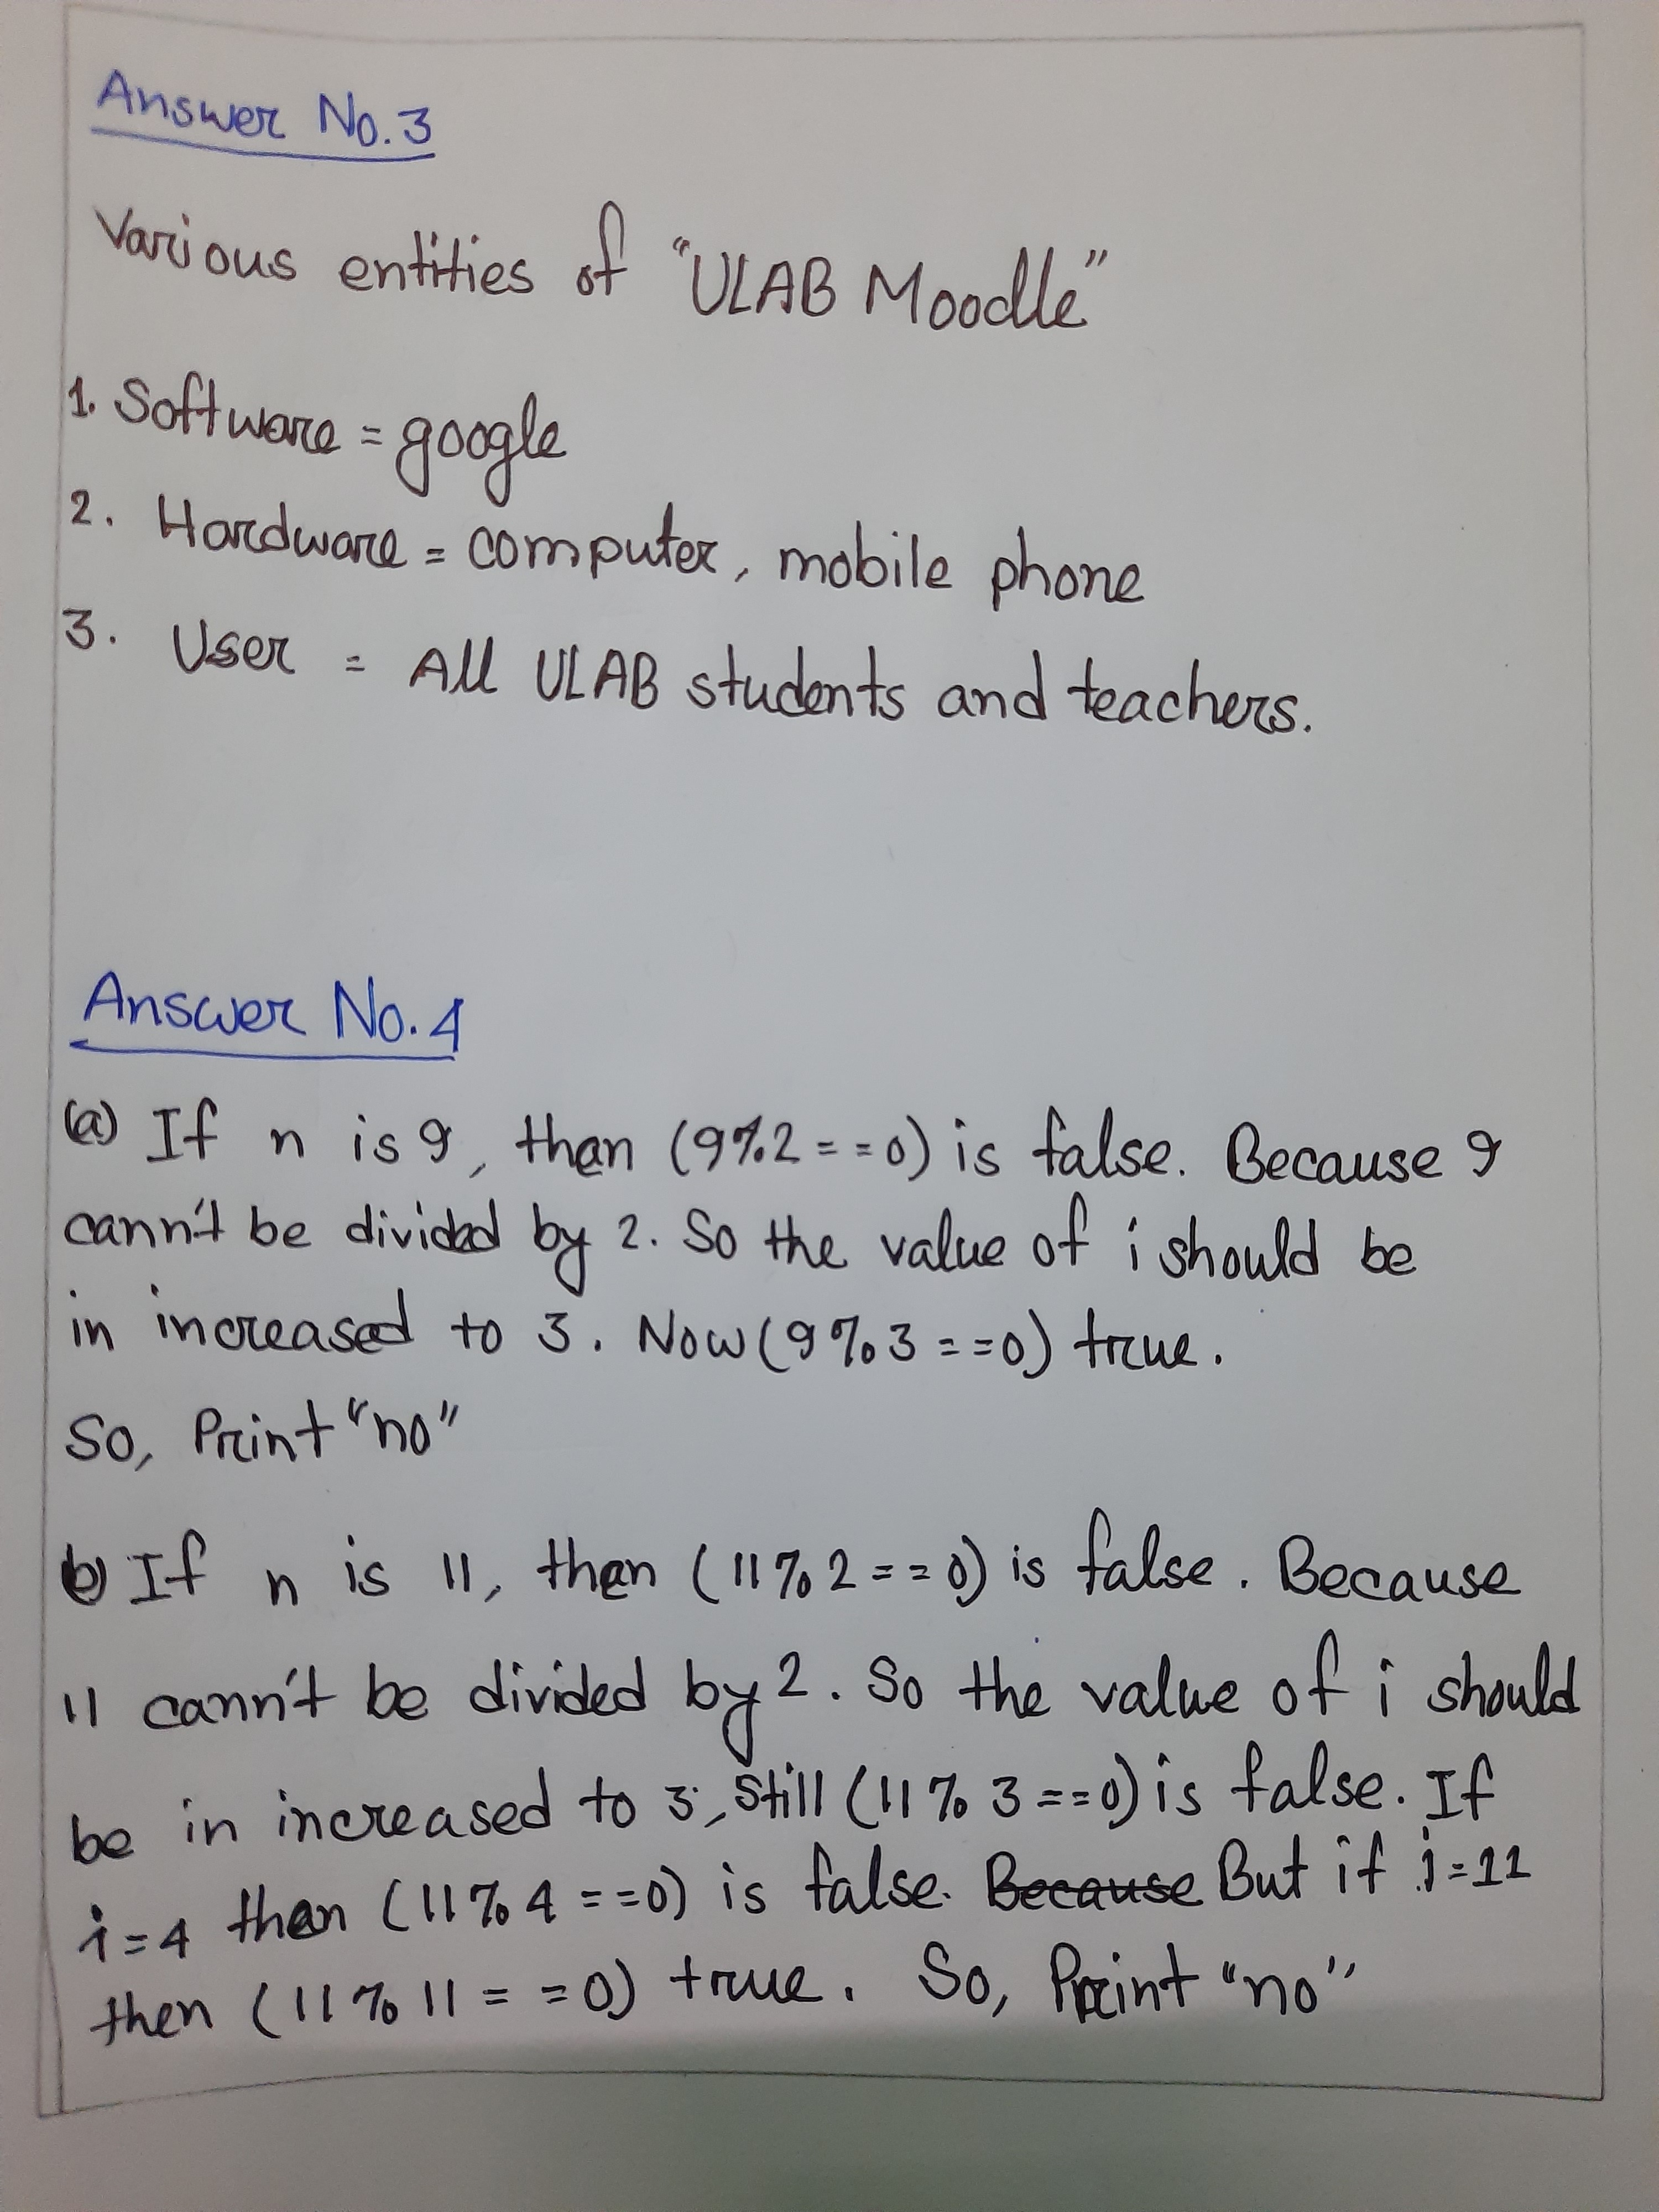 Answer No.3
Various entities of "ULAB Moodle"
1. Software = google
2. Hardware = computer, mobile phone
3. User = All ULAB students and teachers.
Answer No.4
(a) If n is 9, then (9%2==0) is false. Because 9
cann't be divided by 2. So the value of i should be
in increased to 3. Now (9%3==0) true.
So, Print "no"
b) If n is 11, then (11%2==0) is false. Because
11 cann't be divided by 2. So the value of i should
be in increased to 3, Still (11%3==0) is false. If
i=4 then (11%4==0) is false. Because But if i=11
then (11%11==0) true. So, Print "no"